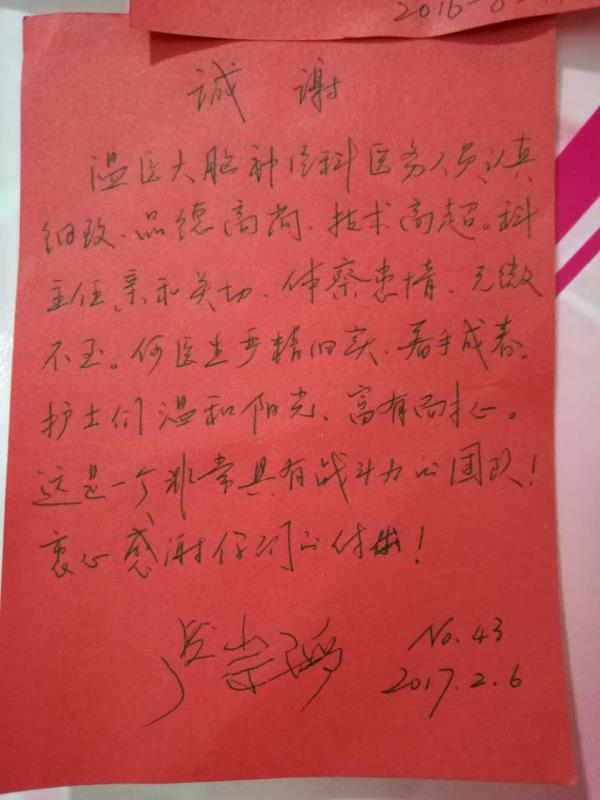 2016-8-
诚 谢
温医大脑肿瘤科医务人员认真
细致、品德高尚、技术高超。科
主任亲和关切、体察患情、无微
不至。何医生严精细实、着手成春。
护士们温和阳光、富有耐心。
这是一个非常具有战斗力的团队!
衷心感谢你们的付出!
No.43
2017.2.6